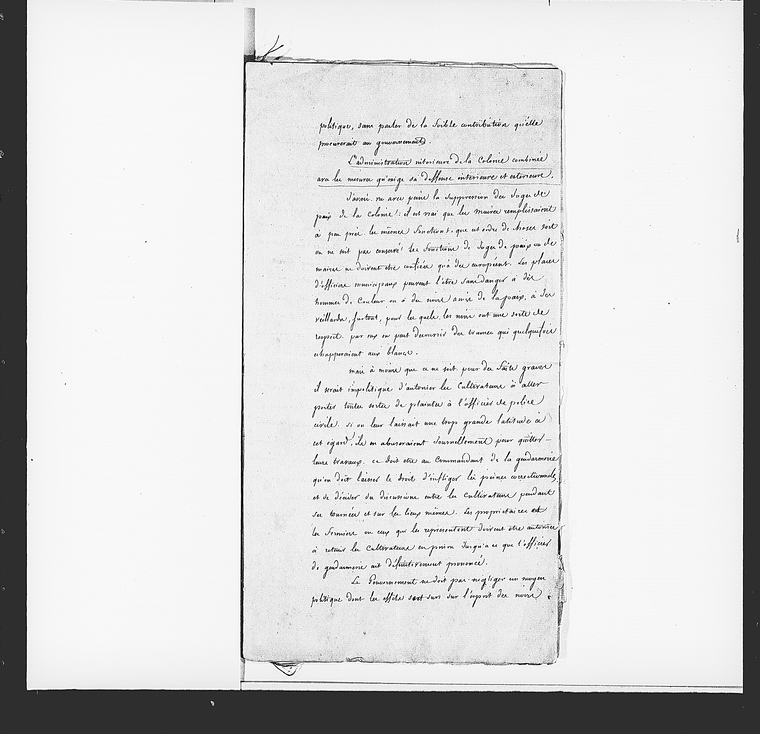 politique, sans parler de la foible contribution qu'elle
procurerait au gouvernement.
L'administration interieure de la Colonie combinée
avec les mesures qu'exige sa deffense interieure et exterieure.
J'avois vu avec peine la suppression des Juges de
paix de la Colonie: il est vrai que les maires remplissaient
à peu près les mêmes fonctions. que cet ordre de choses soit
ou ne soit pas conservé les fonctions de Juges de paix ou de
maires ne doivent être confiées qu'à des européens. Les places
d'officiers municipaux peuvent l'être sans danger à des
hommes de Couleur ou à des noirs amis de la paix, à des
veillards, surtout, pour les quels les noirs ont une sorte de
respect. par eux on peut decouvrir des trames qui quelquefois
echapperaient aux blancs.
mais à moins que ce ne soit pour des faits graves
il serait impolitique d'autoriser les Cultivateurs à aller
porter toutes sortes de plaintes à l'officier de police
civile. si on leur laissait une trop grande latitude à
cet égard, ils en abuseraient Journellement pour quitter
leurs travaux. ce doit être au Commandant de la gendarmerie
qu'on doit laisser le droit d'infliger les peines correctionnels
et de décider des discussions entre les Cultivateurs pendant
ses tournées et sur les lieux mêmes. Les proprietaires et
les fermiers ou ceux qui les representent doivent être autorisés
à retenir les Cultivateurs en prison Jusqu'a ce que l'officier
de gendarmerie ait définitivement prononcé.
Le Gouvernement ne doit pas négliger un moyen
politique dont les effets sont surs sur l'esprit des noirs.